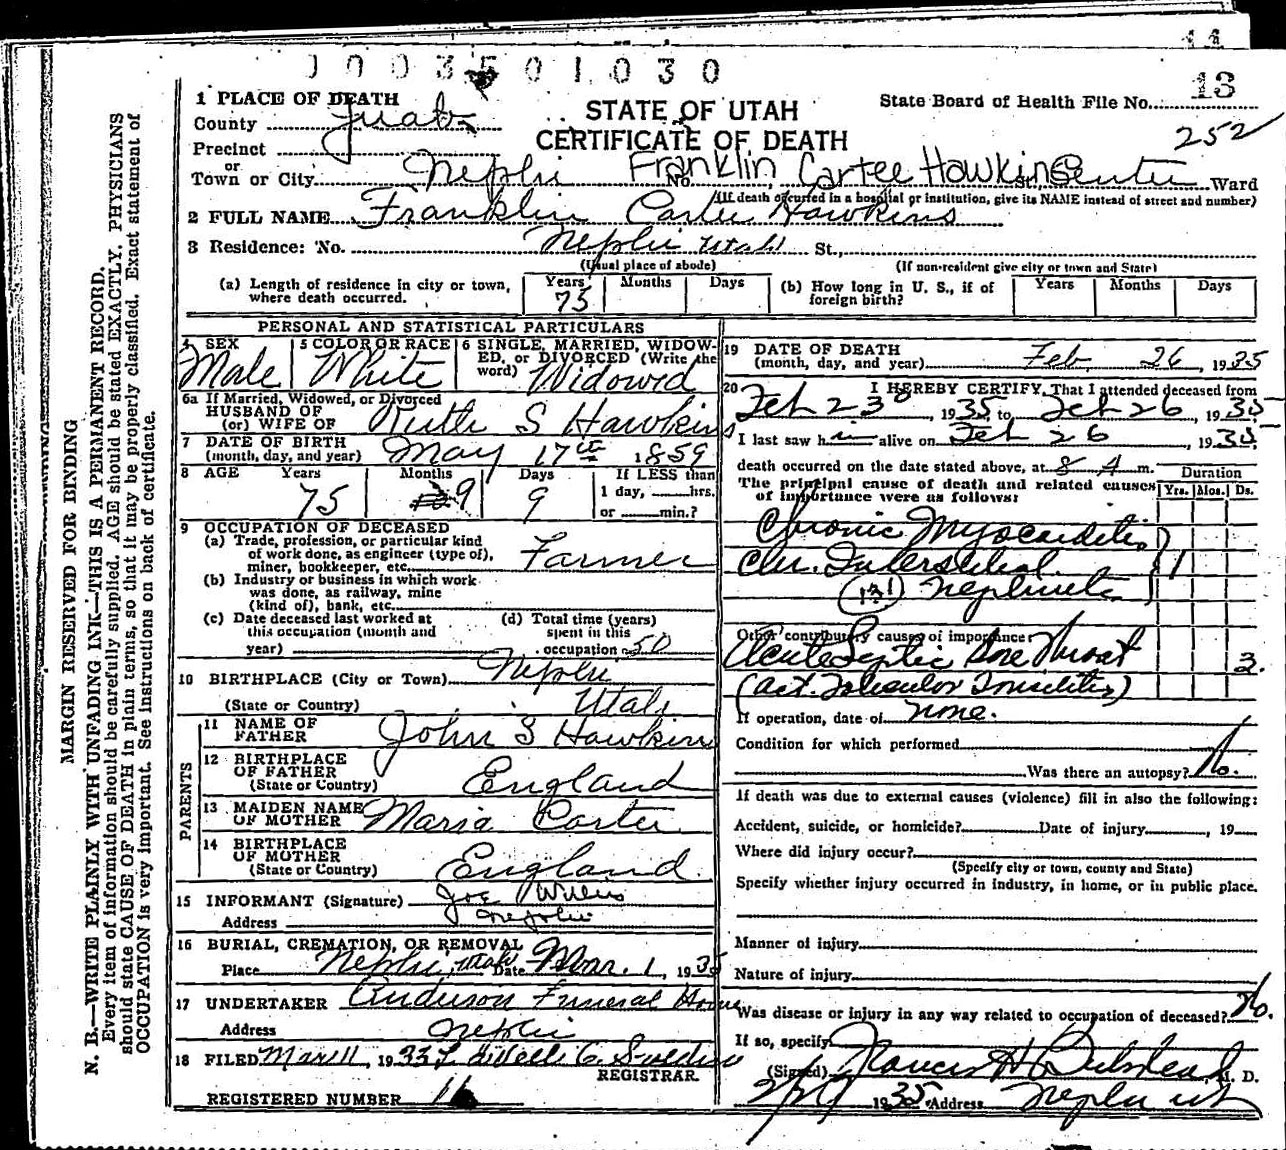 11
1003501030
13
1 PLACE OF DEATH
STATE OF UTAH
State Board of Health File No.
County Juab
CERTIFICATE OF DEATH
252
Precinct
or
Town or City Nephi No. Franklin Cartee Hawkins Ward
(If death occurred in a hospital or institution, give its NAME instead of street and number)
2 FULL NAME Franklin Carter Hawkins
3 Residence: No. Nephi Utah St.,
(Usual place of abode) (If non-resident give city or town and State)
(a) Length of residence in city or town, where death occurred. Years 75 Months Days
(b) How long in U. S., if of foreign birth? Years Months Days
PERSONAL AND STATISTICAL PARTICULARS
4 SEX Male
5 COLOR OR RACE White
6 SINGLE, MARRIED, WIDOWED, or DIVORCED (Write the word) Widowed
6a If Married, Widowed, or Divorced
HUSBAND OF
(or) WIFE OF Ruth S Hawkins
7 DATE OF BIRTH
(month, day, and year) May 17th 1859
8 AGE Years 75 Months 9 Days 9 If LESS than
1 day, hrs.
or min.?
9 OCCUPATION OF DECEASED
(a) Trade, profession, or particular kind
of work done, as engineer (type of),
miner, bookkeeper, etc. Farmer
(b) Industry or business in which work
was done, as railway, mine
(kind of), bank, etc.
(c) Date deceased last worked at
this occupation (month and
year)
(d) Total time (years)
spent in this
occupation 50
10 BIRTHPLACE (City or Town) Nephi
(State or Country) Utah
PARENTS
11 NAME OF
FATHER John S Hawkins
12 BIRTHPLACE
OF FATHER
(State or Country) England
13 MAIDEN NAME
OF MOTHER Maria Carter
14 BIRTHPLACE
OF MOTHER
(State or Country) England
15 INFORMANT (Signature) Joe
Address Nephi
16 BURIAL, CREMATION, OR REMOVAL
Place Nephi, Utah Date Mar. 1, 1935
17 UNDERTAKER Anderson Funeral Home
Address Nephi
18 FILED Mar 11, 193
REGISTRAR
REGISTERED NUMBER 16
19 DATE OF DEATH
(month, day, and year) Feb 26, 1935
20 I HEREBY CERTIFY, That I attended deceased from
Feb 23, 1935 to Feb 26, 1935
I last saw him alive on Feb 26, 1935
death occurred on the date stated above, at 8 A m.
The principal cause of death and related causes
of importance were as follows:
Duration
Yrs. Mos. Ds.
Chronic Myocarditis
Chr. Interstitial 1
(131) Nephritis
Other contributory causes of importance:
Acute Septic Sore Throat 3.
(Act. Folicular Tonsilitis)
If operation, date of none.
Condition for which performed
Was there an autopsy? No.
If death was due to external causes (violence) fill in also the following:
Accident, suicide, or homicide? Date of injury, 19
Where did injury occur?
(Specify city or town, county and State)
Specify whether injury occurred in industry, in home, or in public place.
Manner of injury
Nature of injury
Was disease or injury in any way related to occupation of deceased? No.
If so, specify
(Signed) M. D.
1935 Address Nephi Ut
MARGIN RESERVED FOR BINDING
N. B.—WRITE PLAINLY WITH UNFADING INK—THIS IS A PERMANENT RECORD.
Every item of information should be carefully supplied. AGE should be stated EXACTLY. PHYSICIANS
should state CAUSE OF DEATH in plain terms, so that it may be properly classified. Exact statement of
OCCUPATION is very important. See instructions on back of certificate.